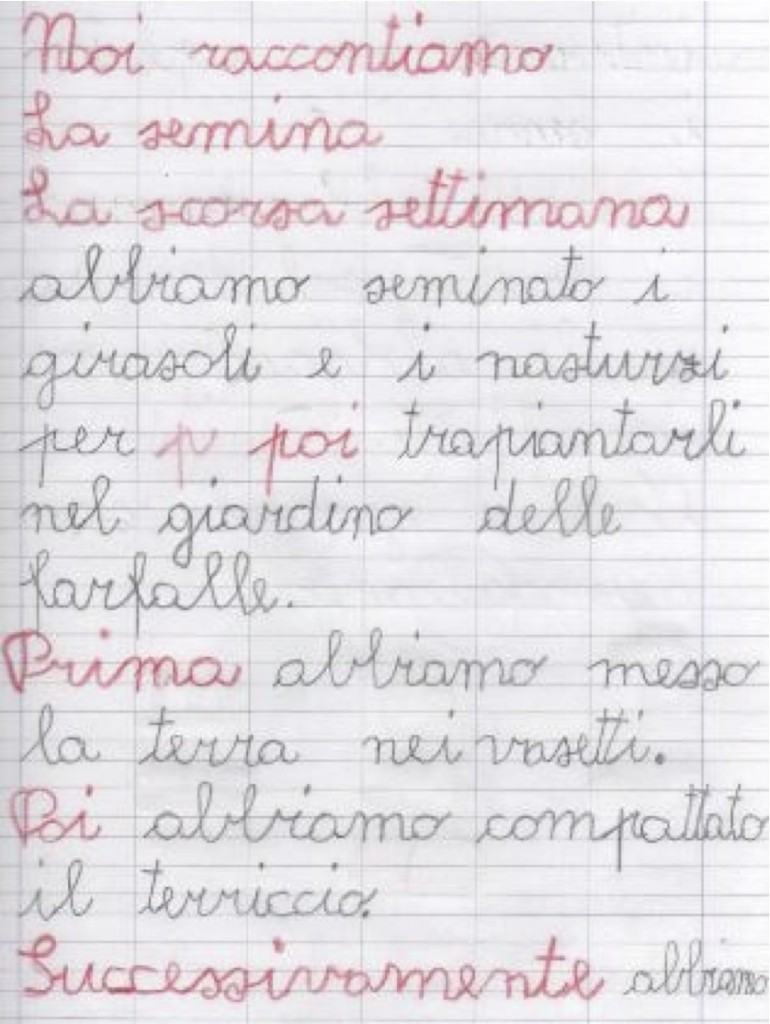 Noi raccontiamo
La semina
La scorsa settimana
abbiamo seminato i
girasoli e i nasturzi
per p poi trapiantarli
nel giardino delle
farfalle.
Prima abbiamo messo
la terra nei vasetti.
Poi abbiamo compattato
il terriccio.
Successivamente abbiamo